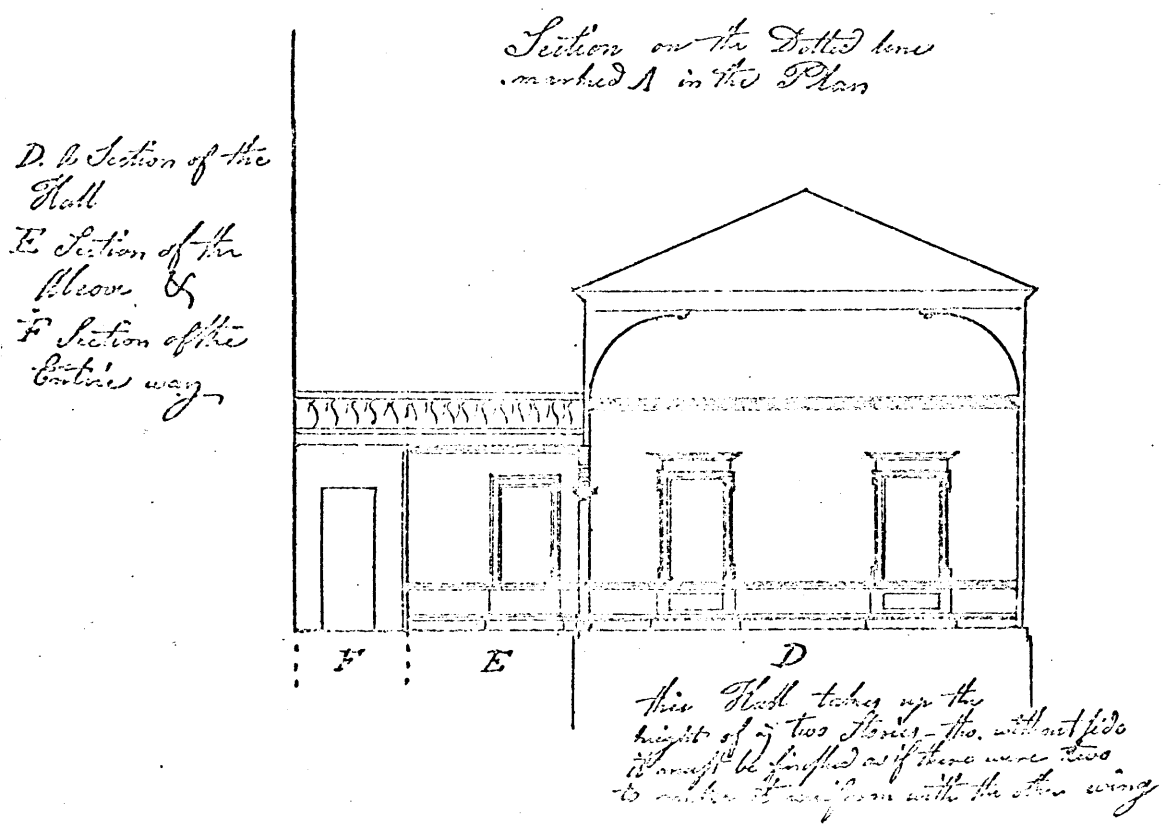 Section on the Dotted line
marked A in the Plan
D. A Section of the
Hall
E Section of the
Alcove &
F Section of the
Entire way
F E D
this Hall takes up the
height of two Stories - tho. without side
it must be finished as if there were two
to make it uniform with the other wing